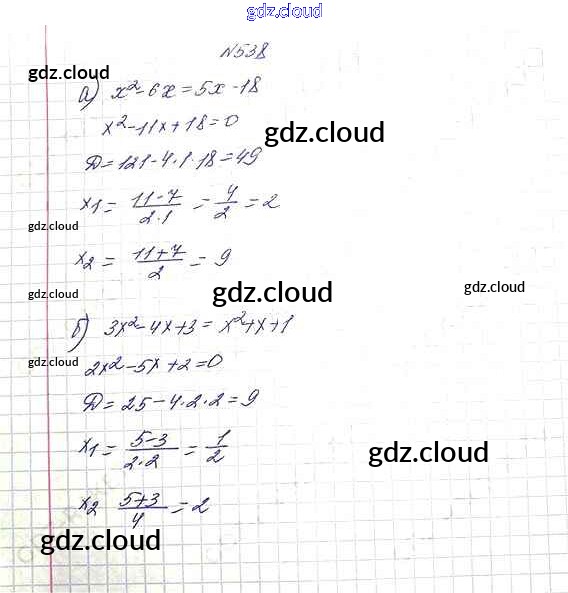 gdz.cloud
N538
gdz.cloud
а) x²-6x=5x-18
x²-11x+18=0
gdz.cloud
D=121-4·1·18=49
x1= 11-7/2·1 = 4/2 = 2
gdz.cloud
x2= 11+7/2 = 9
gdz.cloud
gdz.cloud
gdz.cloud
б) 3x²-4x+3=x²+x+1
gdz.cloud
2x²-5x+2=0
D=25-4·2·2=9
x1= 5-3/2·2 = 1/2
gdz.cloud
x2 5+3/4 =2
gdz.cloud